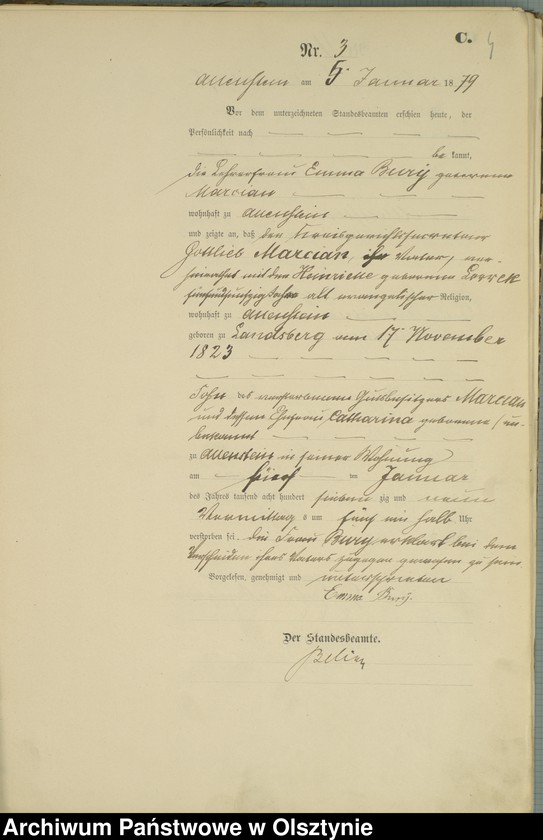 C.
4
Nr. 3
Allenstein am 5. Januar 1879
Vor dem unterzeichneten Standesbeamten erschien heute, der
Persönlichkeit nach
be kannt,
die Lehrerfrau Emma Bury geborene
Marcian
wohnhaft zu Allenstein
und zeigte an, daß der Kreisgerichtssecretair
Gottlieb Marcian, ihr Vater, ver-
heirathet mit der Heinriette geborene Lorrek
fünfundfünfzig Jahre alt evangelischer Religion,
wohnhaft zu Allenstein
geboren zu Landsberg am 17. November
1823
Sohn des verstorbenen Gutsbesitzers Marcian
und dessen Ehefrau Catharina geborene / un-
bekannt
zu Allenstein in seiner Wohnung
am fünf ten Januar
des Jahres tausend acht hundert sieben zig und neun
Vormittag s um fünf ein halb Uhr
verstorben sei. Die Frau Bury erklärt bei dem
Hinscheiden ihres Vaters zugegen gewesen zu sein
Vorgelesen, genehmigt und unterschrieben
Emma Bury.
Der Standesbeamte.
Archiwum Państwowe w Olsztynie